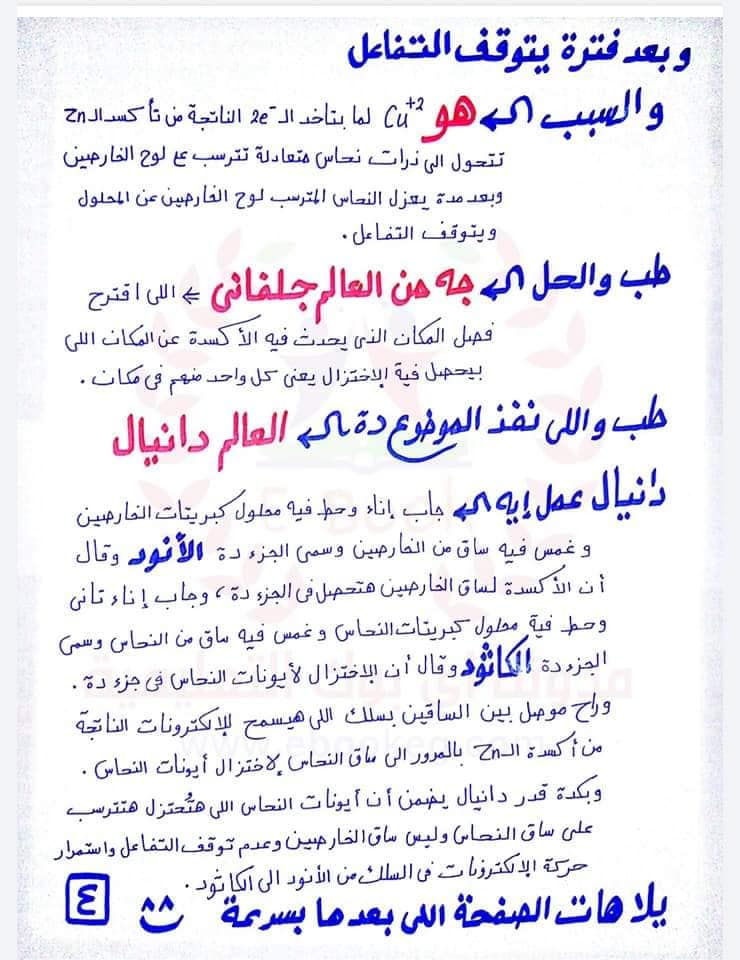 وبعد فترة يتوقف التفاعل
والسبب ← هو Cu+2 لما بتاخد الـ 2e- الناتجة من تأكسد الـ Zn
تتحول الى ذرات نحاس متعادلة تترسب ع لوح الخارصين
وبعد مدة يعزل النحاس المترسب لوح الخارصين عن المحلول
ويتوقف التفاعل.
طب والحل ← جه من العالم جلفانى ⇐ اللى اقترح
فصل المكان الذى يحدث فيه الأكسدة عن المكان اللى
بيحصل فية الإختزال يعنى كل واحد منهم فى مكان.
طب واللى نفذ الموضوع دة ← العالم دانيال
دانيال عمل إيه ← جاب إناء وحط فيه محلول كبريتات الخارصين
وغمس فيه ساق من الخارصين وسمى الجزء دة الأنود وقال
أن الأكسدة لساق الخارصين هتحصل فى الجزء دة، وجاب إناء تانى
وحط فية محلول كبريتات النحاس وغمس فيه ساق من النحاس وسمى
الجزء دة الكاثود وقال أن الإختزال لأيونات النحاس فى جزء دة.
وراح موصل بين الساقين بسلك اللى هيسمح للإلكترونات الناتجة
من أكسدة الـ Zn بالمرور الى ساق النحاس لاختزال أيونات النحاس.
وبكدة قدر دانيال يضمن أن أيونات النحاس اللى هتُختزل هتترسب
على ساق النحاس وليس ساق الخارصين وعدم توقف التفاعل واستمرار
حركة الإلكترونات فى السلك من الأنود الى الكاثود.
يلا هات الصفحة اللى بعدها بسرعة ^^
٤
E-Book
مدونة اى بوك التعليمية